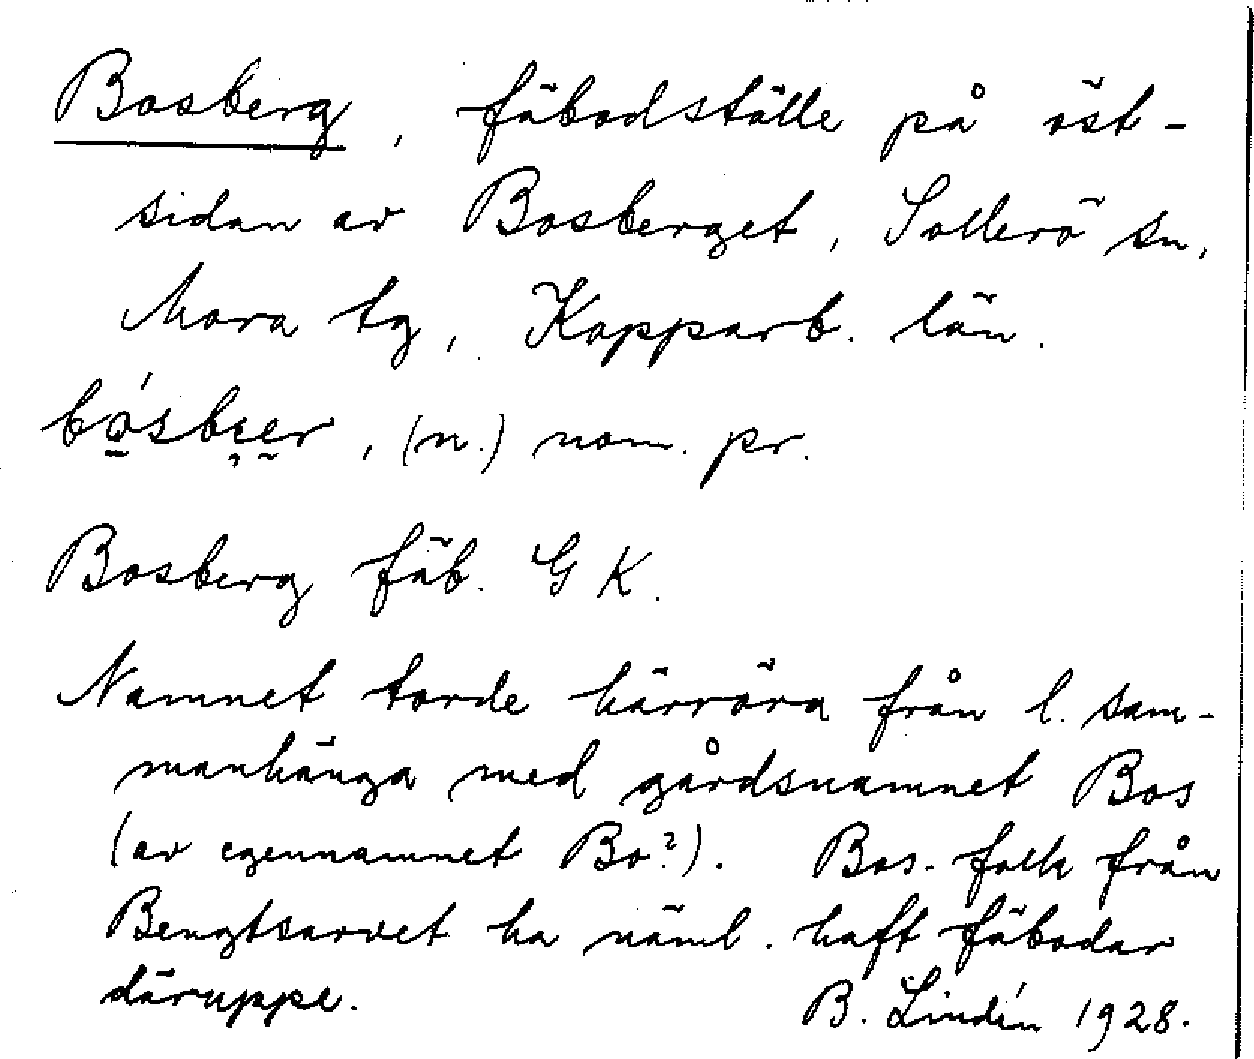 Bosberg, fäbodställe på öst-
sidan av Bosberget, Sollerö sn,
Mora tg, Kopparb. län.
(n.) nom. pr.
Bosberg fäb. GK.
Namnet torde härröra från l. sam-
manhänga med gårdsnamnet Bos
(av egennamnet Bo?). Bos-folk från
Bengtsarvet ha näml. haft fäbodar
däruppe.
B. Lindén 1928.